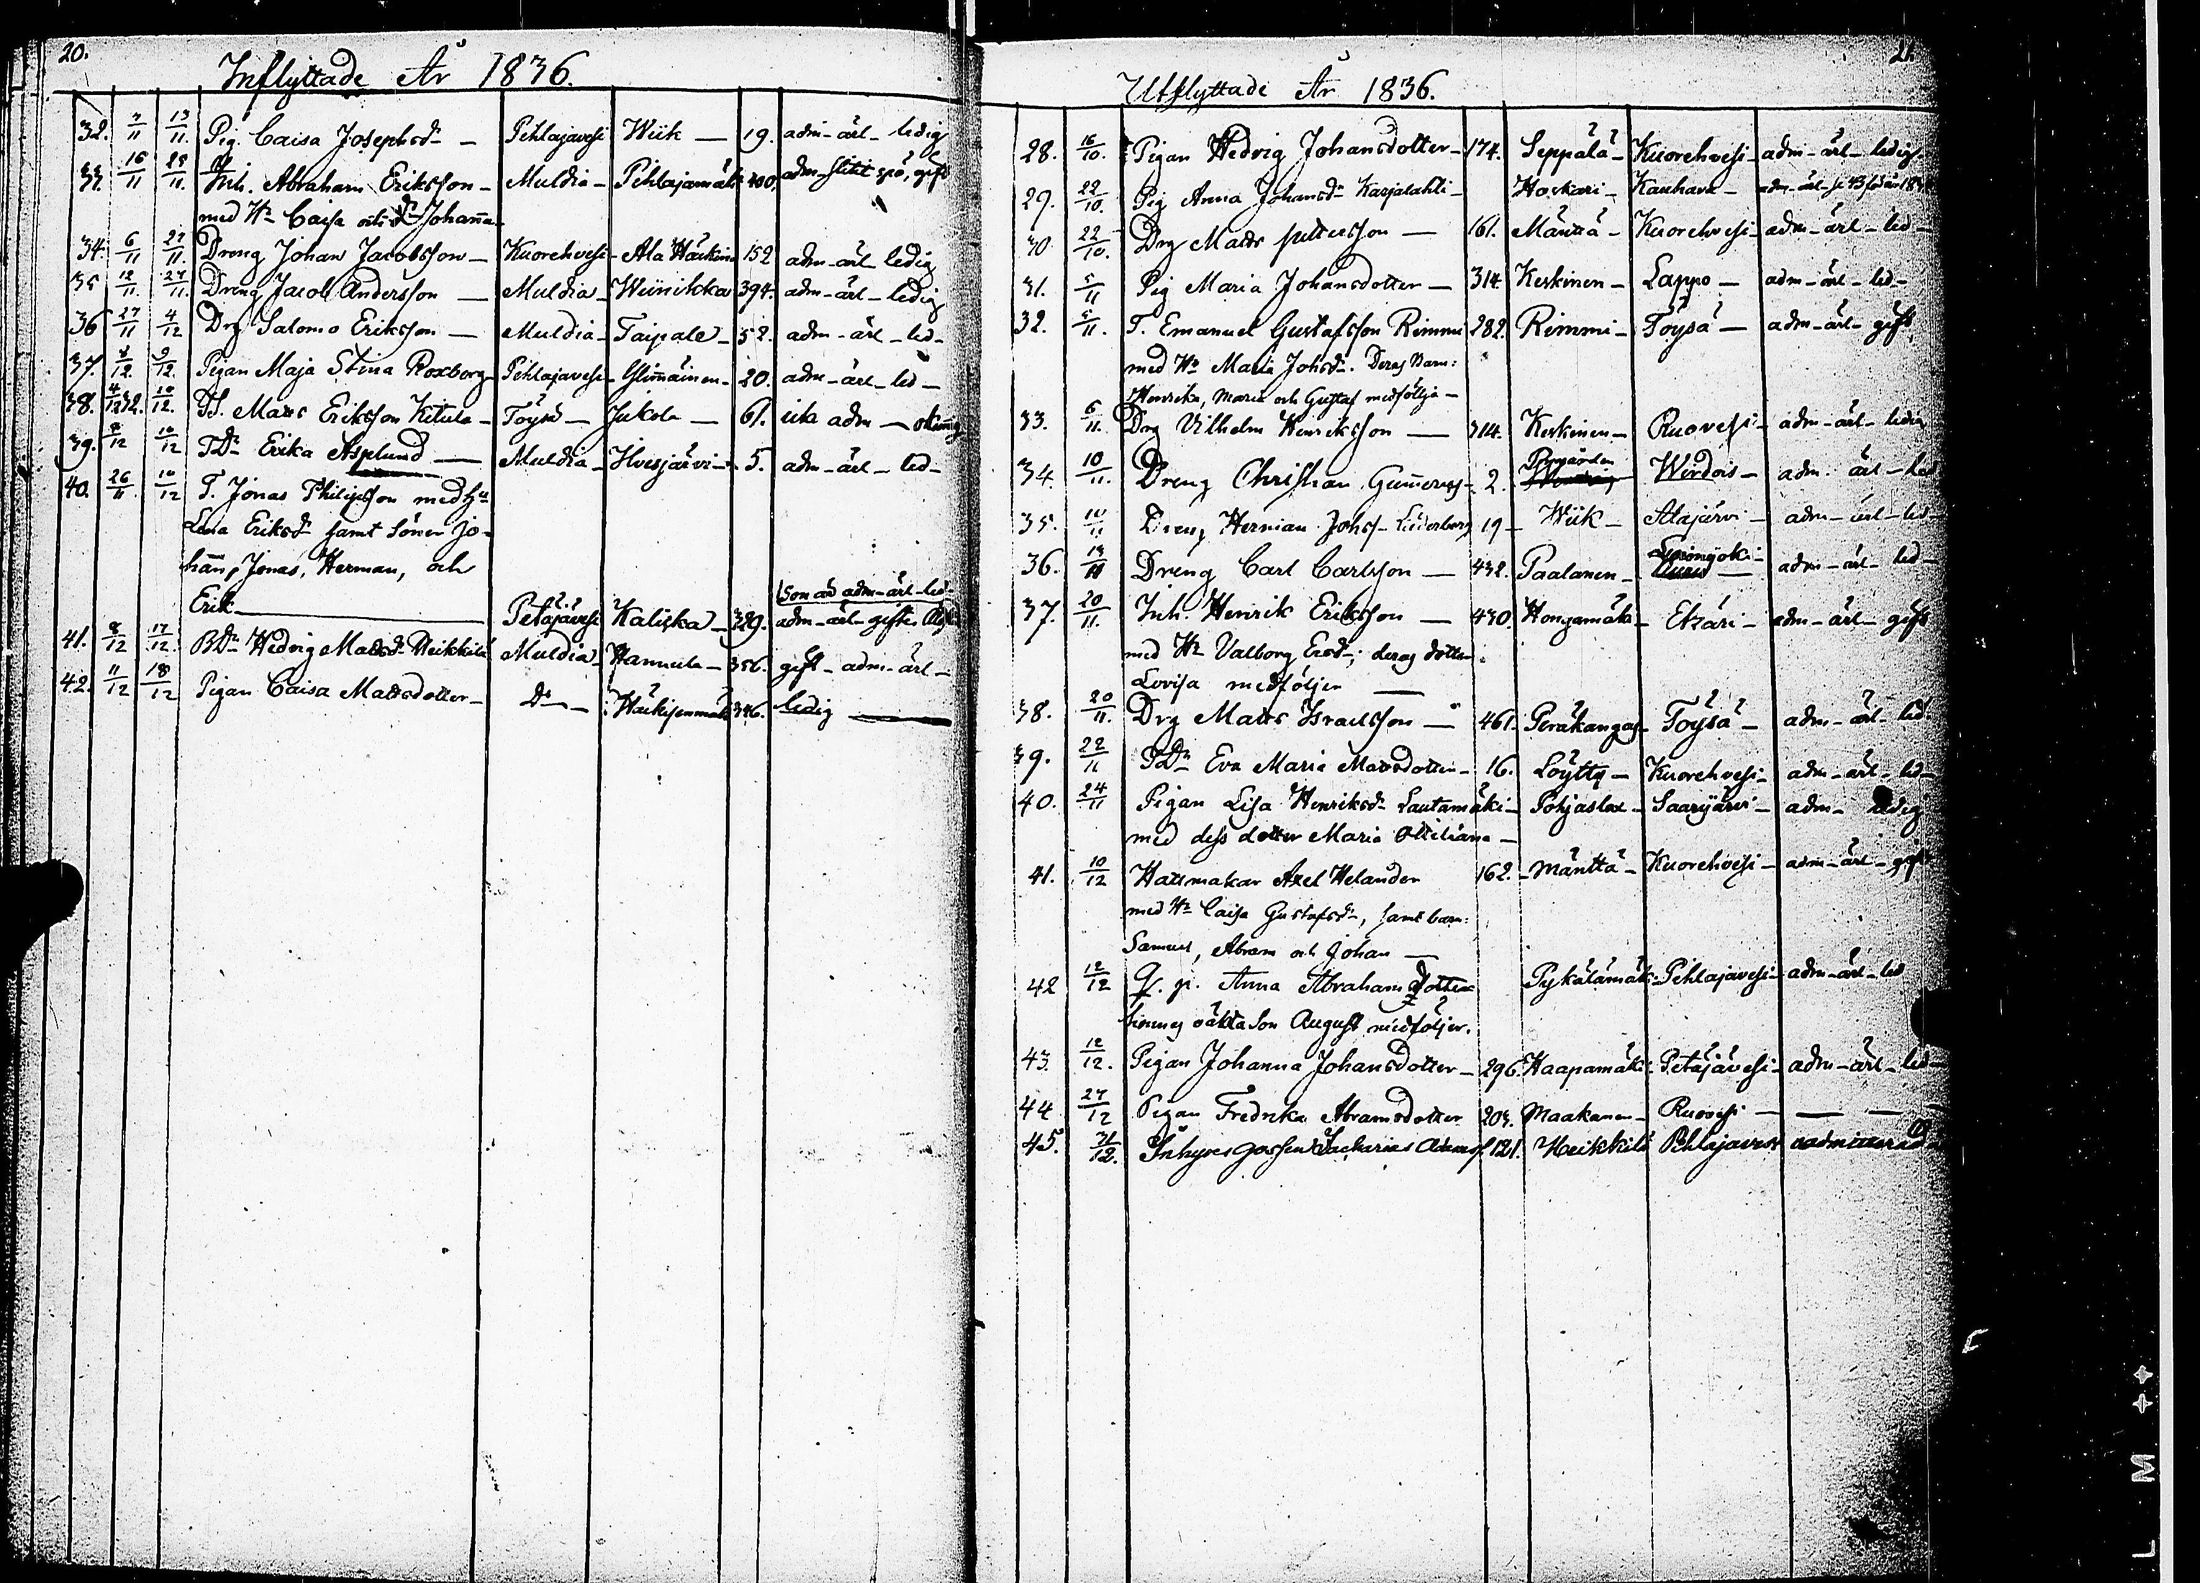 20.
Inflyttade År 1836.
32. 7/11 13/11. Pig. Caisa Josephsdr — Pihlajavesi Wiik — 19. adm- ärl- ledig
33. 16/11 Inh. Abraham Eriksson — Muldia — Pihlajamäki 400. adm- gift
med Hu Caisa och dr Johanna
34. 6/11 27/11. Dreng Johan Jacobsson — Kuorehvesi — Ala Häckinä 152 adm- ärl ledig
35 12/11. 27/11. Dreng Jacob Andersson — Muldia — Weinikka 394. adm- ärl- ledig
36 27/11 4/12 Drg Salomo Eriksson — Muldia — Taipale — 52. adm- ärl- led-
37. 9/12. Pigan Maja Stina Roxborg — Pihlajavesi — 20. adm- ärl- led-
38. 4/12 10/12. Matts Eriksson Kitula — Töysä — Jukola — 61. adm —
39. 8/12 10/12 TDr Erika Asplund — Muldia — Ilvesjärvi — 5. adm- ärl- led-
40. 26/11 10/12 T. Jonas Philipsson med Hu
Lena Eriksdr samt söner Jo-
han, Jonas, Herman, och
Son ad adm- ärl- led-
Erik — Petäjävesi Kaliska — 329. adm- ärl- gifte
41. 8/12 17/12. BDr Hedvig Mattsdr Heikkilä Muldia — Hannula — 356. gift- adm- ärl-
42. 11/12 18/12 Pigan Caisa Mattsdotter — Do — Häkisenmäki 346. ledig —
21.
Utflyttade År 1836.
28. 16/10. Pigan Hedvig Johansdotter — 174. Seppälä — Kuorehvesi — adm- ärl- ledig.
29. 22/10. Pig Anna Johansdr Karjalahti — Hoskari — Kauhava — adm- ärl-
30 22/10. Drg Matts pettersson — 161. Mänttä — Kuorehvesi — adm- ärl- led-
31. 5/11 Pig Maria Johansdotter — 314 Keskinen — Lappo — adm- ärl- led-
32. 5/11. T. Emanuel Gustafsson Rimmi 282. Rimmi — Töysä — adm- ärl- gift
med Hu Maria Johsdr. Deras Barn:
Henrika, Maria och Gustaf medfölja —
33. 6/11. Drg Vilhelm Henriksson — 314. Keskinen — Ruovesi — adm- ärl- ledig
34. 10/11. Dreng Christian Gummerus — 2. Wirdois — adm. ärl- led
35. 10/11 Dreng Herman Johss- 19 — Wiik — Alajärvi — adm- ärl- led-
36. Dreng Carl Carlsson — 432. Paalanen — adm- ärl- led-
37. 20/11. Inh. Henrik Eriksson — 430. Hongamäki — Etzäri — adm- ärl- gift
med Hu Valborg Ersdr; deras dotter
Lovisa medföljer —
38. 20/11. Drg Matts Israelsson — 461. Peräkangas — Töysä — adm- ärl- led-
39. 22/11 TDr Eva Maria Mattsdotter — 16. Löytty — Kuorehvesi — adm- ärl- led-
40. 24/11 Pigan Lisa Henriksdr Lautamäki — Pohjaslax — Saarijärvi — adm- ledig
med dess dotter Maria Ottiliana —
41. 10/12 Hattmakar Axel Helander 162. — Mänttä — Kuorehvesi — adm- ärl- gift
med Hu Caisa Gustafsdr, samt barn:
Samuel, Abram och Johan —
42 12/12 Q. p. Anna Abrahamsdotter Pykälämäki — Pihlajavesi — adm- ärl- led
hennes oäkta Son August medföljer.
43. 12/12. Pigan Johanna Johansdotter — 296. Haapamäki — Petäjävesi — adm- ärl- led-
44 27/12 Pigan Fredrika Abramsdotter 203. Maakanen — Ruovesi —
45. 31/12. Inhyses gossen Zacharias Adamss. 121. Heikkilä Pihlajavesi oadmitterad